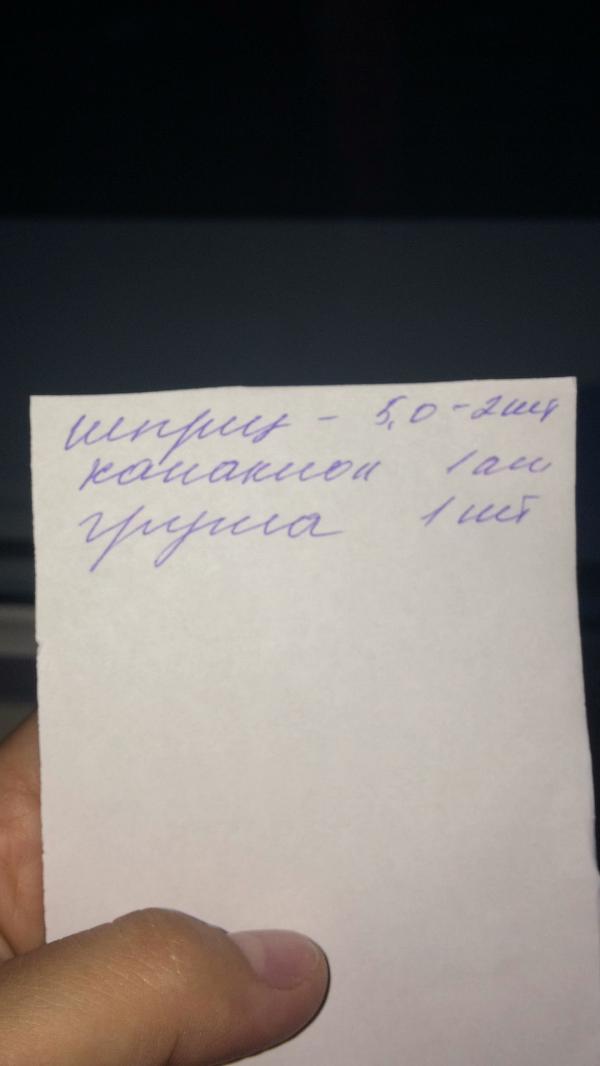 шприц - 5,0 - 2 шт
канакион 1 ам
груша 1 шт